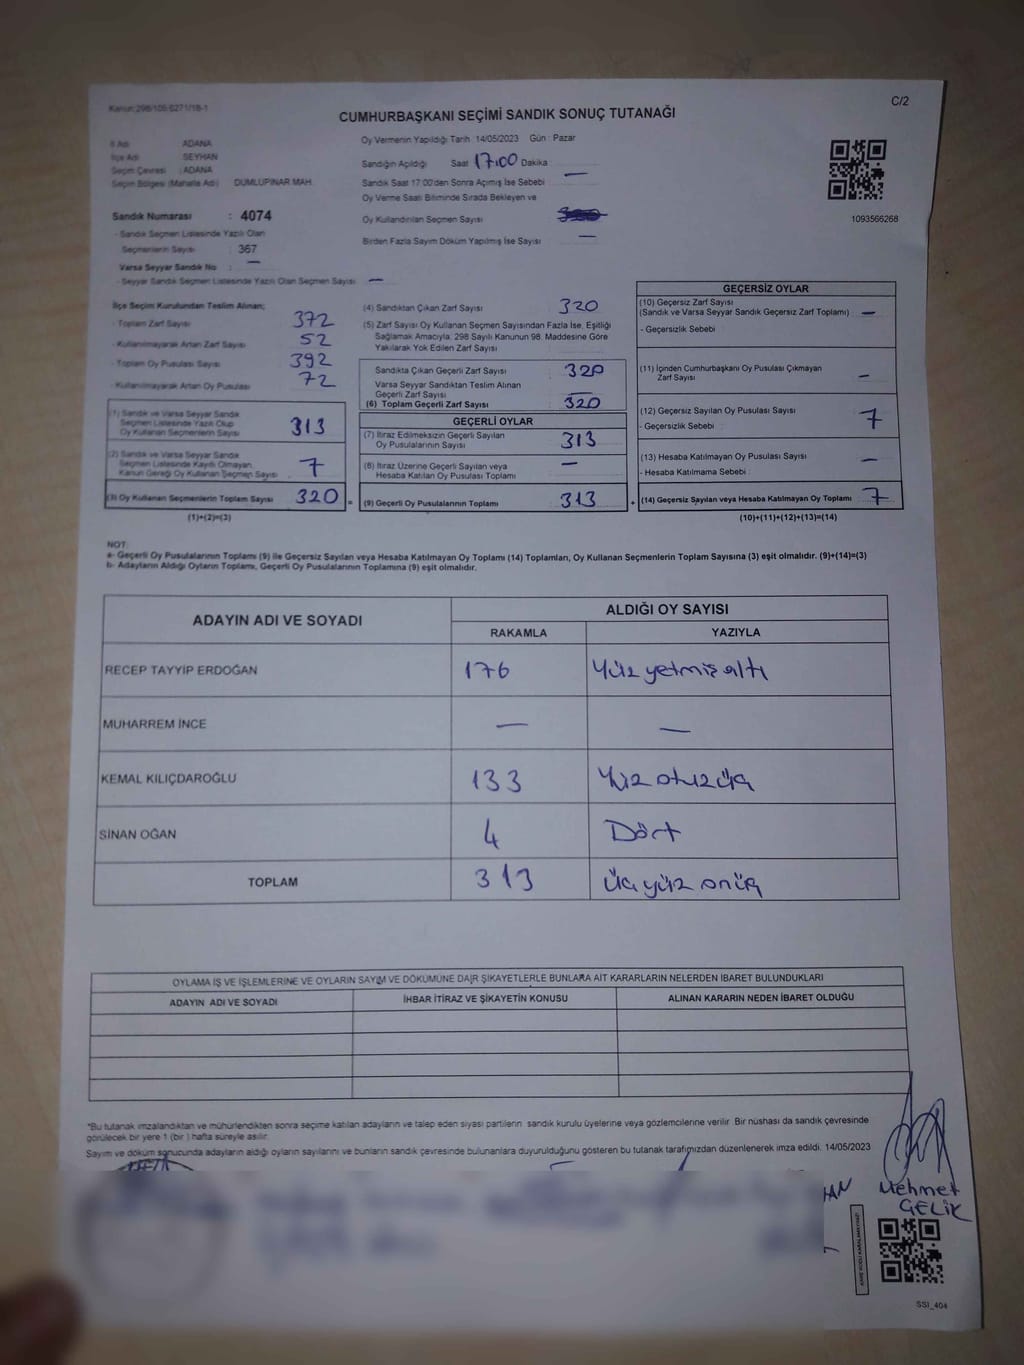 Kanun:298/105-6271/18-1
C/2
CUMHURBAŞKANI SEÇİMİ SANDIK SONUÇ TUTANAĞI
İl Adı ADANA
İlçe Adı SEYHAN
Seçim Çevresi : ADANA
Seçim Bölgesi (Mahalle Adı) DUMLUPINAR MAH.
Sandık Numarası : 4074
- Sandık Seçmen Listesinde Yazılı Olan
Seçmenlerin Sayısı : 367
Varsa Seyyar Sandık No : —
- Seyyar Sandık Seçmen Listesinde Yazılı Olan Seçmen Sayısı —
Oy Vermenin Yapıldığı Tarih : 14/05/2023 Gün : Pazar
Sandığın Açıldığı Saat 17:00 Dakika
Sandık Saat 17:00'den Sonra Açılmış İse Sebebi —
Oy Verme Saati Bitiminde Sırada Bekleyen ve
Oy Kullandırılan Seçmen Sayısı
Birden Fazla Sayım Döküm Yapılmış İse Sayısı —
1093566268
İlçe Seçim Kurulundan Teslim Alınan;
- Toplam Zarf Sayısı 372
- Kullanılmayarak Artan Zarf Sayısı 52
- Toplam Oy Pusulası Sayısı 392
- Kullanılmayarak Artan Oy Pusulası 72
(1) Sandık ve Varsa Seyyar Sandık
Seçmen Listesinde Yazılı Olup
Oy Kullanan Seçmenlerin Sayısı 313
(2) Sandık ve Varsa Seyyar Sandık
Seçmen Listesinde Kayıtlı Olmayan
Kanun Gereği Oy Kullanan Seçmen Sayısı 7
(3) Oy Kullanan Seçmenlerin Toplam Sayısı 320 =
(1)+(2)=(3)
(4) Sandıktan Çıkan Zarf Sayısı 320
(5) Zarf Sayısı Oy Kullanan Seçmen Sayısından Fazla İse, Eşitliği
Sağlamak Amacıyla, 298 Sayılı Kanunun 98. Maddesine Göre
Yakılarak Yok Edilen Zarf Sayısı
Sandıkta Çıkan Geçerli Zarf Sayısı 320
Varsa Seyyar Sandıktan Teslim Alınan
Geçerli Zarf Sayısı —
(6) Toplam Geçerli Zarf Sayısı 320
GEÇERLİ OYLAR
(7) İtiraz Edilmeksizin Geçerli Sayılan
Oy Pusulalarının Sayısı 313
(8) İtiraz Üzerine Geçerli Sayılan veya
Hesaba Katılan Oy Pusulası Toplamı —
(9) Geçerli Oy Pusulalarının Toplamı 313 +
GEÇERSİZ OYLAR
(10) Geçersiz Zarf Sayısı
(Sandık ve Varsa Seyyar Sandık Geçersiz Zarf Toplamı) —
- Geçersizlik Sebebi
(11) İçinden Cumhurbaşkanı Oy Pusulası Çıkmayan
Zarf Sayısı —
(12) Geçersiz Sayılan Oy Pusulası Sayısı 7
- Geçersizlik Sebebi
(13) Hesaba Katılmayan Oy Pusulası Sayısı —
- Hesaba Katılmama Sebebi
(14) Geçersiz Sayılan veya Hesaba Katılmayan Oy Toplamı 7
(10)+(11)+(12)+(13)=(14)
NOT:
a- Geçerli Oy Pusulalarının Toplamı (9) ile Geçersiz Sayılan veya Hesaba Katılmayan Oy Toplamı (14) Toplamları, Oy Kullanan Seçmenlerin Toplam Sayısına (3) eşit olmalıdır. (9)+(14)=(3)
b- Adayların Aldığı Oyların Toplamı, Geçerli Oy Pusulalarının Toplamına (9) eşit olmalıdır.
ADAYIN ADI VE SOYADI
ALDIĞI OY SAYISI
RAKAMLA YAZIYLA
RECEP TAYYİP ERDOĞAN 176 Yüz yetmiş altı
MUHARREM İNCE — —
KEMAL KILIÇDAROĞLU 133 Yüz otuz üç
SİNAN OĞAN 4 Dört
TOPLAM 313 üç yüz onüç
OYLAMA İŞ VE İŞLEMLERİNE VE OYLARIN SAYIM VE DÖKÜMÜNE DAİR ŞİKAYETLERLE BUNLARA AİT KARARLARIN NELERDEN İBARET BULUNDUKLARI
ADAYIN ADI VE SOYADI İHBAR İTİRAZ VE ŞİKAYETİN KONUSU ALINAN KARARIN NEDEN İBARET OLDUĞU
*Bu tutanak imzalandıktan ve mühürlendikten sonra seçime katılan adayların ve talep eden siyasi partilerin sandık kurulu üyelerine veya gözlemcilerine verilir. Bir nüshası da sandık çevresinde
görülecek bir yere 1 (bir) hafta süreyle asılır.
Sayım ve döküm sonucunda adayların aldığı oyların sayılarını ve bunların sandık çevresinde bulunanlara duyurulduğunu gösteren bu tutanak tarafımızdan düzenlenerek imza edildi. 14/05/2023
Mehmet
ÇELİK
SSI_404